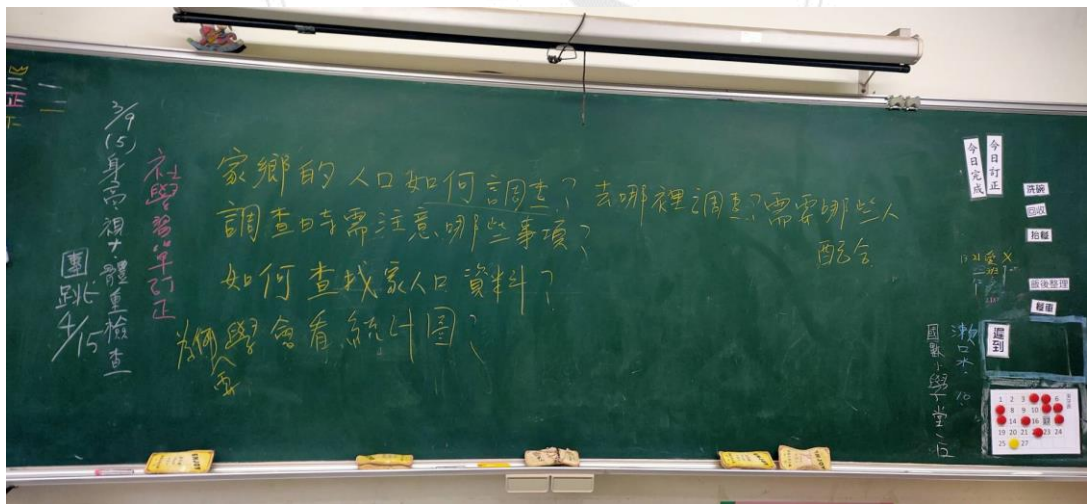 3/9(五)身高視力體重檢查
團跳4/15
社學習單訂正
家鄉的人口如何調查?去哪裡調查?需要哪些人
配合
調查時需注意哪些事項?
如何查找家人口資料?
為何要學會看統計圖?
今日完成
今日訂正
洗碗
回收
抬餐
飯後整理
餐車
遲到
漱口水
1 2 3 6
8 9 10
14 16
19 20 21 23 24
25 27